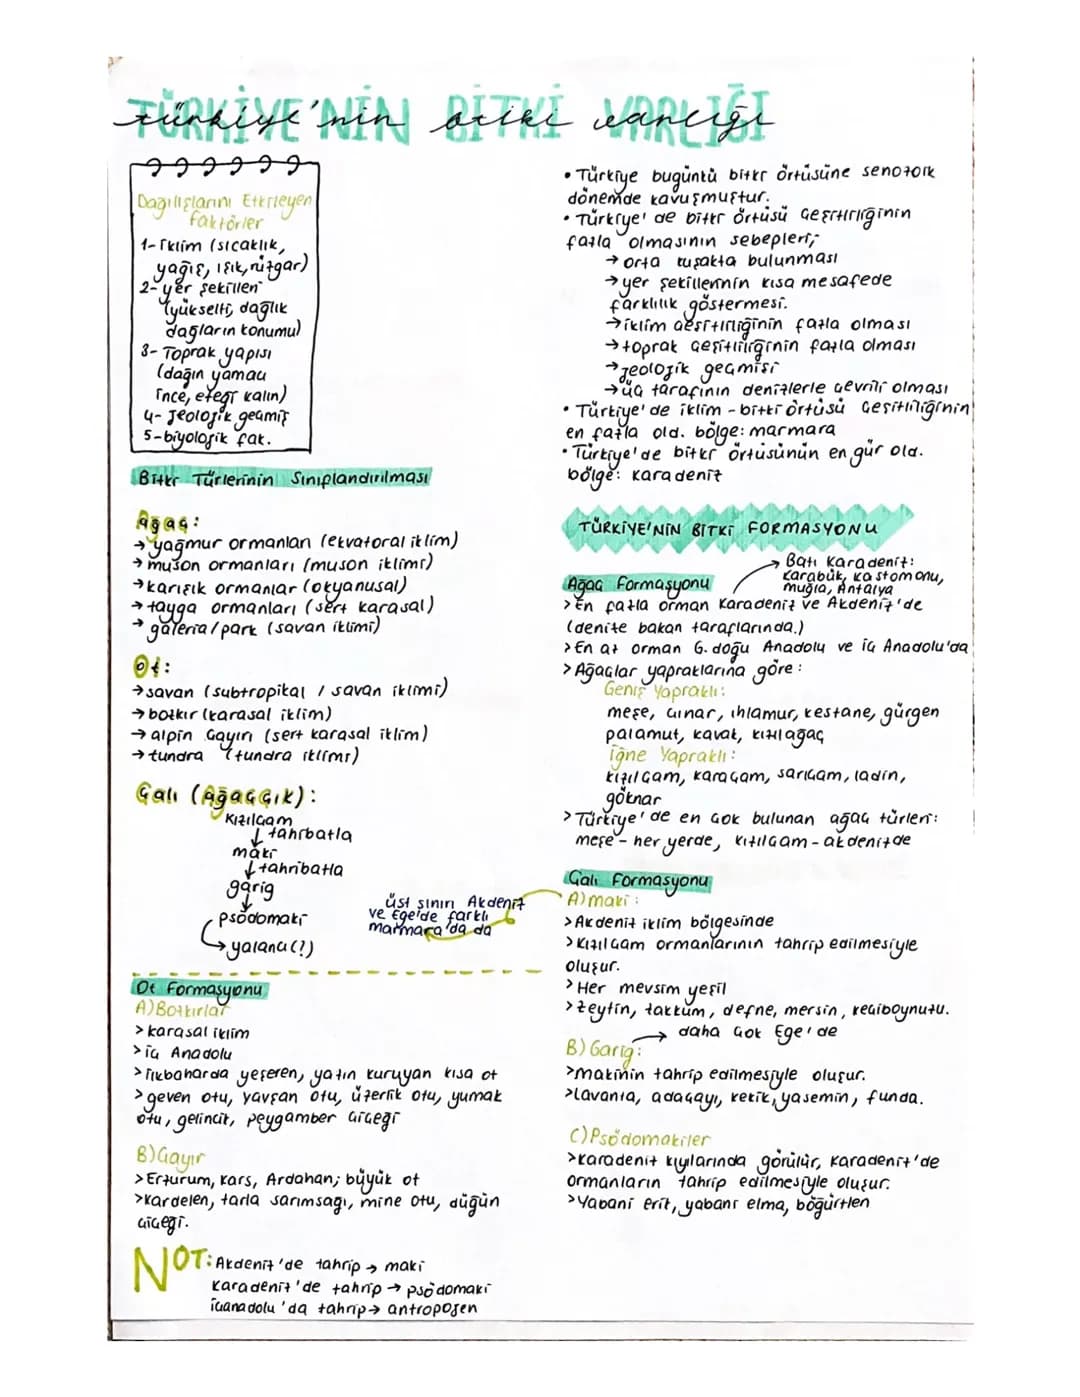 TÜRKİYE'NİN BİTKİ VARLIĞI
Türkiye'nin bitki varlığı
Dağılışlarını Etkileyen
faktörler
1- İklim (sıcaklık,
yağış, ışık, rüzgar)
2- yer şekilleri
(yükselti, dağlık
dağların konumu)
3- Toprak yapısı
(dağın yamacı
ince, eteği kalın)
4- Jeolojik geçmiş
5- biyolojik fak.
Bitki Türlerinin Sınıflandırılması
Ağaç:
→ yağmur ormanları (ekvatoral iklim)
→ muson ormanları (muson iklimi)
→ karışık ormanlar (okyanusal)
→ tayga ormanları (sert karasal)
→ galeria/park (savan iklimi)
Ot:
→ savan (subtropikal / savan iklimi)
→ bozkır (karasal iklim)
→ alpin çayırı (sert karasal iklim)
→ tundra (tundra iklimi)
Çalı (Ağaççık):
Kızılçam
↓ tahribatla
maki
↓ tahribatla
garig
↓
psödomaki
→ yalancı(?)
Ot Formasyonu
A) Bozkırlar
> karasal iklim
> iç Anadolu
> ilkbaharda yeşeren, yazın kuruyan kısa ot
> geven otu, yavşan otu, üzerlik otu, yumak
otu, gelincik, peygamber çiçeği
B) Çayır
> Erzurum, kars, Ardahan; büyük ot
> kardelen, tarla sarımsağı, mine otu, düğün
çiçeği.
NOT: Akdeniz'de tahrip → maki
Karadeniz'de tahrip → psödomaki
içanadolu'da tahrip → antropojen
• Türkiye bugünkü bitki örtüsüne senozoik
dönemde kavuşmuştur.
• Türkiye'de bitki örtüsü çeşitliliğinin
fazla olmasının sebepleri;
→ orta kuşakta bulunması
→ yer şekillerinin kısa mesafede
farklılık göstermesi.
→ iklim çeşitliliğinin fazla olması
→ toprak çeşitliliğinin fazla olması
→ jeolojik geçmişi
→ üç tarafının denizlerle çevrili olması
• Türkiye'de iklim - bitki örtüsü çeşitliliğinin
en fazla old. bölge: marmara
• Türkiye'de bitki örtüsünün en gür old.
bölge: karadeniz
TÜRKİYE'NİN BİTKİ FORMASYONU
Ağaç Formasyonu
→ Batı Karadeniz:
karabük, kastomonu,
muğla, Antalya
> En fazla orman Karadeniz ve Akdeniz'de
(denize bakan taraflarında.)
> En az orman G. doğu Anadolu ve iç Anadolu'da
> Ağaçlar yapraklarına göre:
Geniş Yapraklı:
meşe, çınar, ıhlamur, kestane, gürgen
palamut, kavak, kızılağaç
iğne Yapraklı:
kızılçam, karaçam, sarıçam, ladin,
göknar
> Türkiye'de en çok bulunan ağaç türleri:
meşe - her yerde, kızılçam - akdenizde
Çalı Formasyonu
A) maki:
üst sınırı Akdeniz
ve Ege'de farklı
marmara'da da
> Akdeniz iklim bölgesinde
> Kızılçam ormanlarının tahrip edilmesiyle
oluşur.
> Her mevsim yeşil
> zeytin, zakkum, defne, mersin, keçiboynuzu.
→ daha çok Ege'de
B) Garig:
> makinin tahrip edilmesiyle oluşur.
> lavanta, adaçayı, kekik, yasemin, funda.
C) Psödomakiler
> karadeniz kıyılarında görülür, karadeniz'de
ormanların tahrip edilmesiyle oluşur.
> Yabani erik, yabani elma, böğürtlen